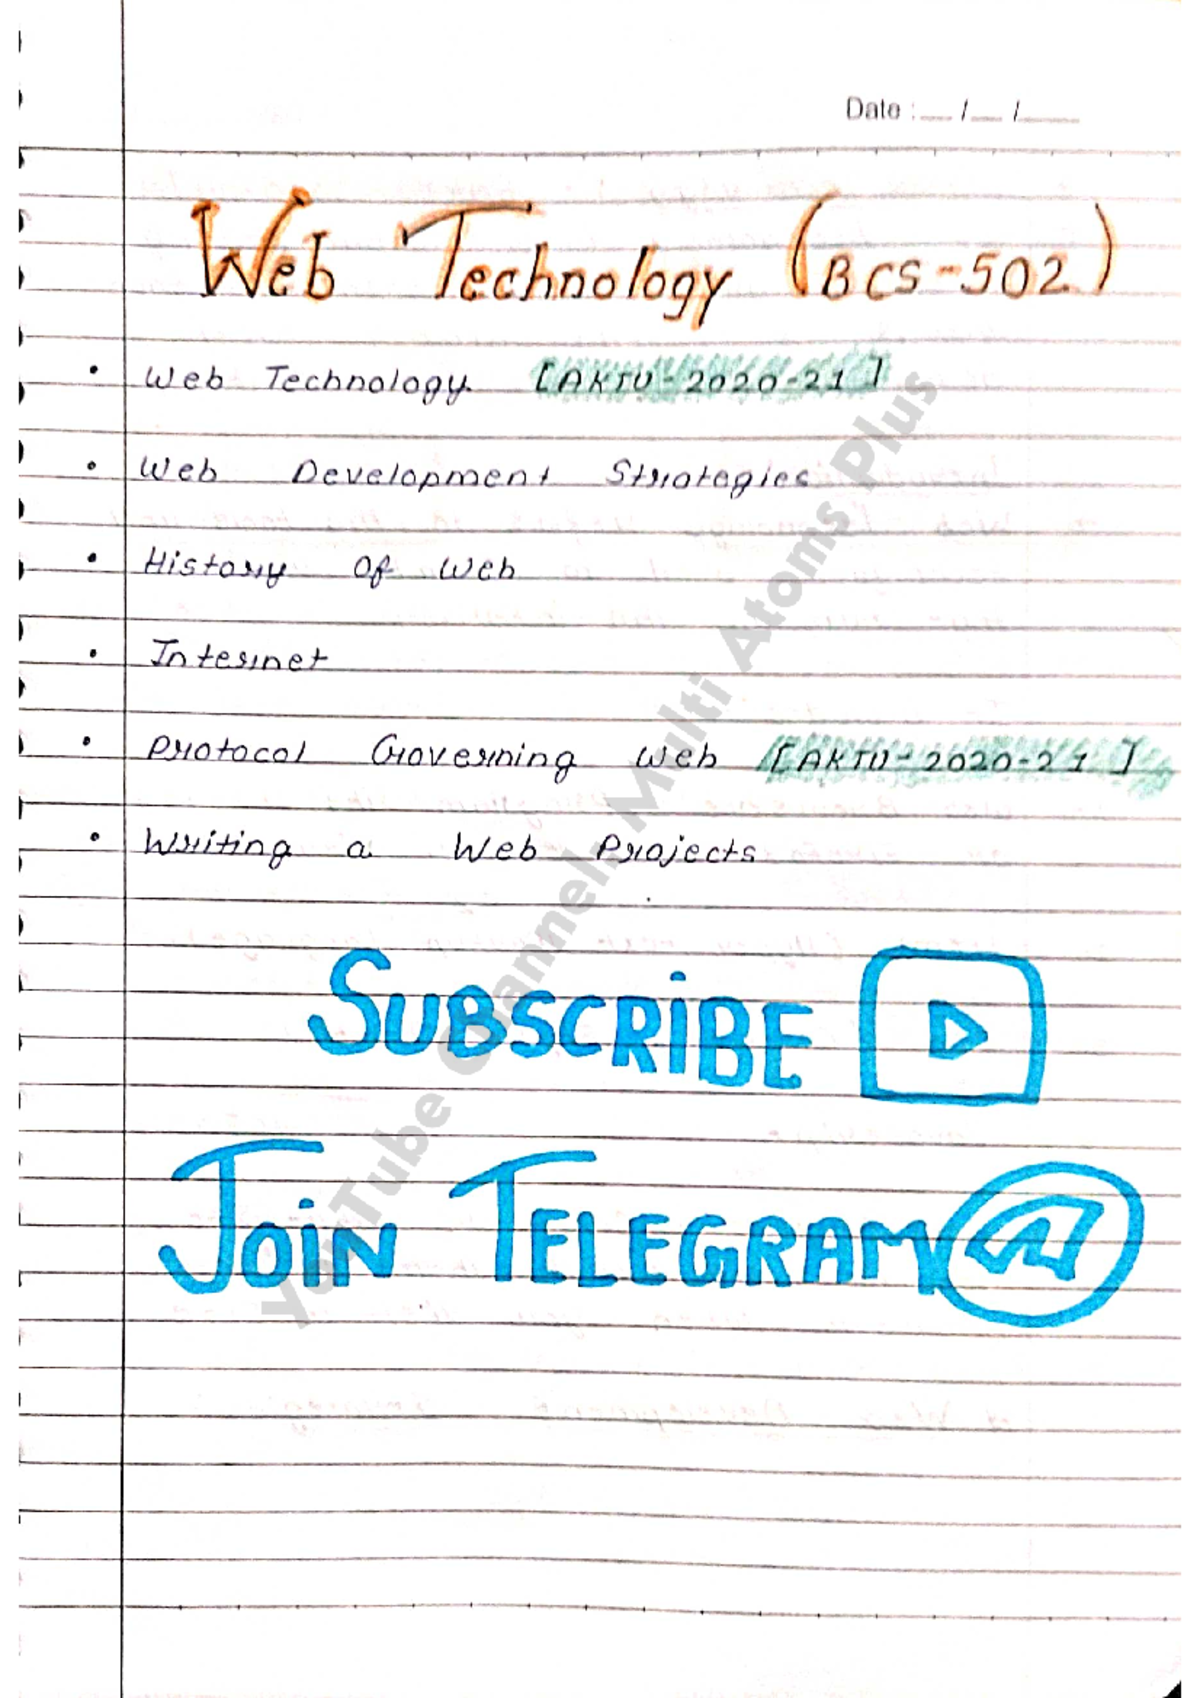 Date : __ / __ / ____
Web Technology (BCS-502)
• Web Technology [AKTU-2020-21]
• Web Development Strategies
• History Of Web
• Internet
• Protocol Governing Web [AKTU-2020-21]
• Writing a Web Projects
SUBSCRIBE
JOIN TELEGRAM
YouTube Channel: Multi Atoms Plus